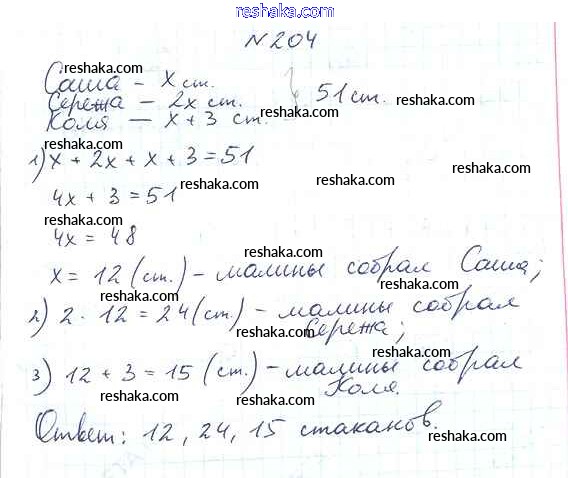 reshaka.com
№ 204
reshaka.com
Саша – x ст.
reshaka.com
Сережа – 2x ст. } 51 ст. reshaka.com
Коля – x + 3 ст.
reshaka.com
1) x + 2x + x + 3 = 51
reshaka.com reshaka.com reshaka.com
4x + 3 = 51
reshaka.com
4x = 48
reshaka.com
x = 12 (ст.) – малины собрал Саша;
reshaka.com reshaka.com
2) 2 · 12 = 24 (ст.) – малины собрал
Сережа;
reshaka.com reshaka.com
reshaka.com
3) 12 + 3 = 15 (ст.) – малины собрал
Коля.
reshaka.com reshaka.com
Ответ: 12, 24, 15 стаканов.
reshaka.com reshaka.com
reshaka.com